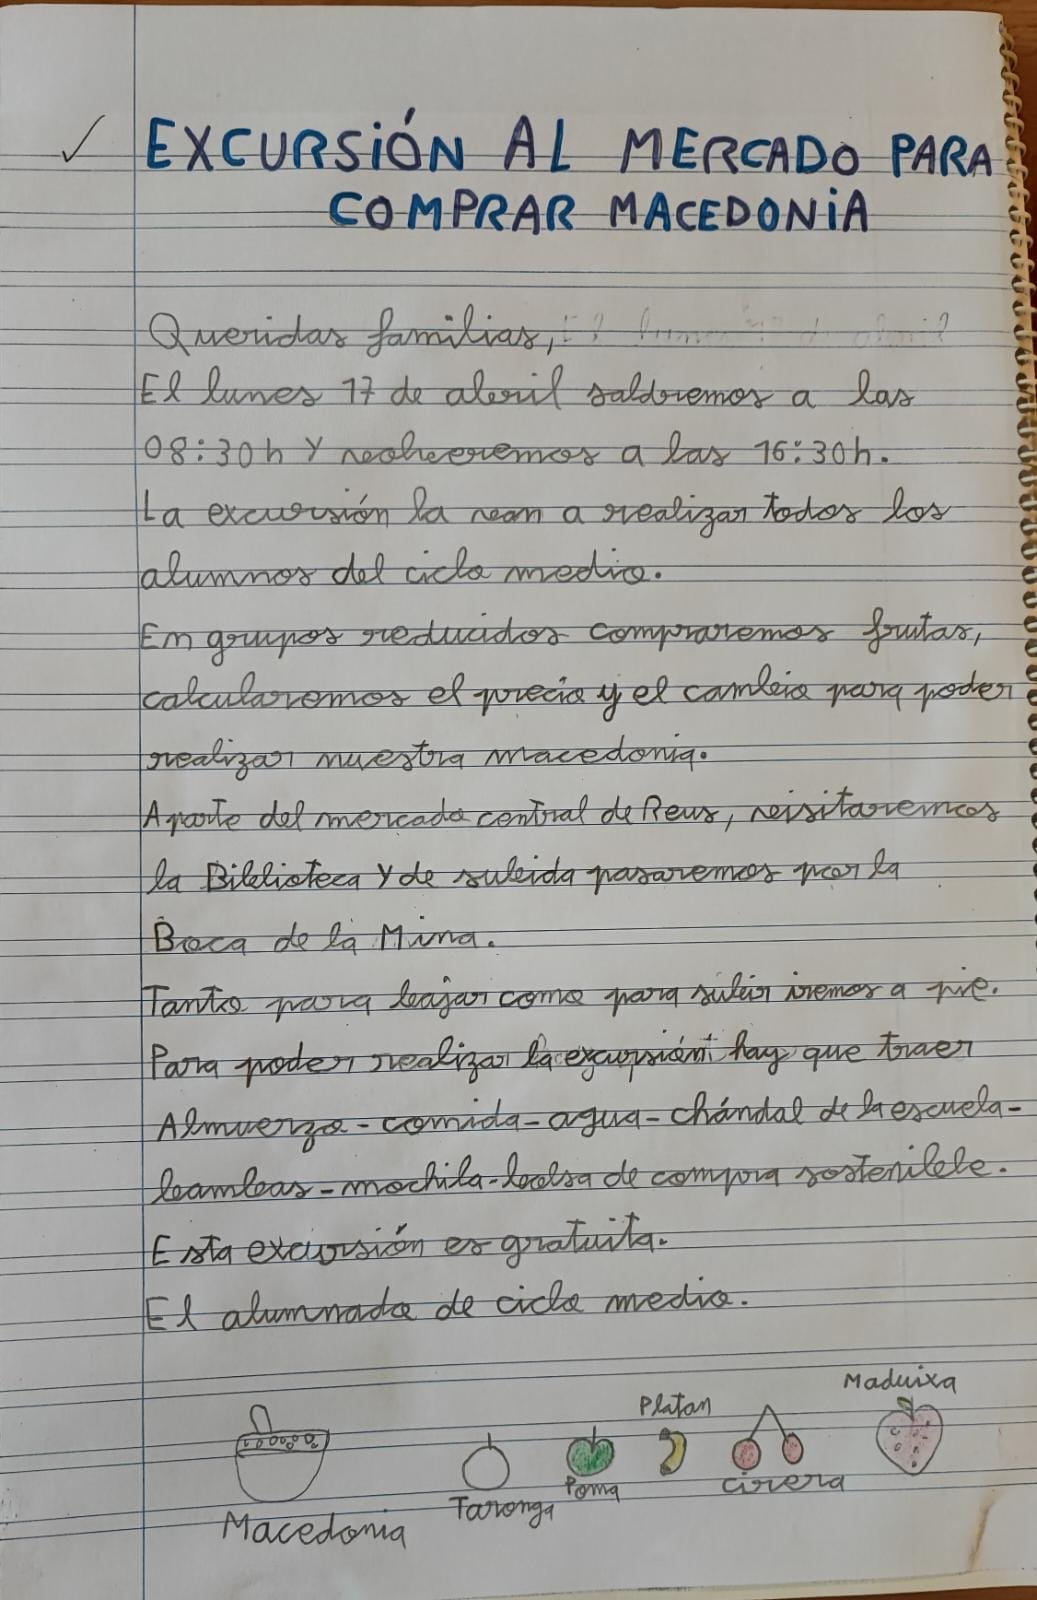 EXCURSIÓN AL MERCADO PARA
COMPRAR MACEDONIA
Queridas familias,
El lunes 17 de abril saldremos a las
08:30h y volveremos a las 16:30h.
La excursión la van a realizar todos los
alumnos del ciclo medio.
En grupos reducidos compraremos frutas,
calcularemos el precio y el cambio para poder
realizar nuestra macedonia.
Aparte del mercado central de Reus, visitaremos
la Biblioteca y de subida pasaremos por la
Boca de la Mina.
Tanto para bajar como para subir iremos a pie.
Para poder realizar la excursión hay que traer
Almuerzo - comida - agua - chándal de la escuela -
bambas - mochila - bolsa de compra sostenible.
Esta excursión es gratuita.
El alumnado de ciclo medio.
Maduixa
Platan
Poma
cirera
Taronga
Macedonia